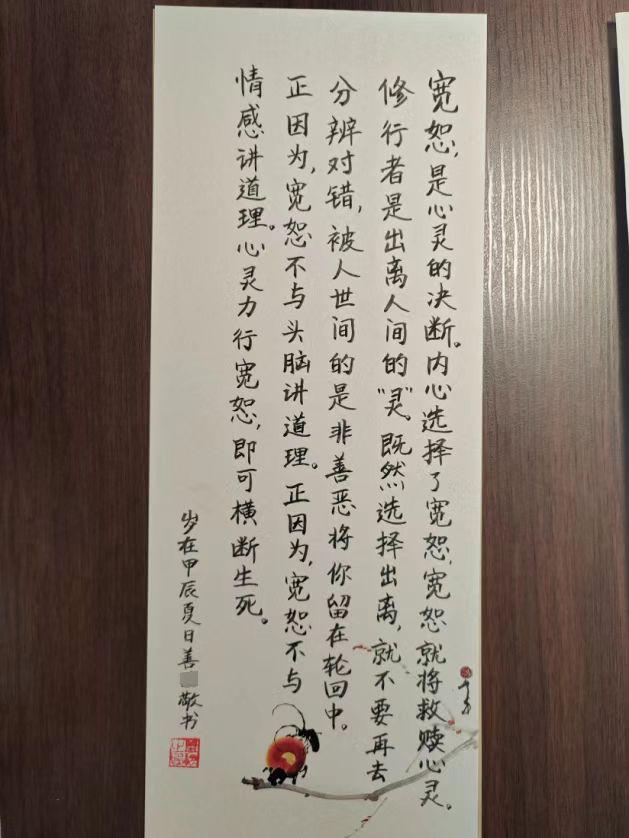 宽恕,是心灵的决断。内心选择了宽恕,宽恕就将救赎心灵。
修行者是出离人间的“灵”,既然选择出离,就不要再去
分辨对错,被人世间的是非善恶将你留在轮回中。
正因为,宽恕不与头脑讲道理。正因为,宽恕不与
情感讲道理。心灵力行宽恕,即可横断生死。
岁在甲辰夏日善
敬书